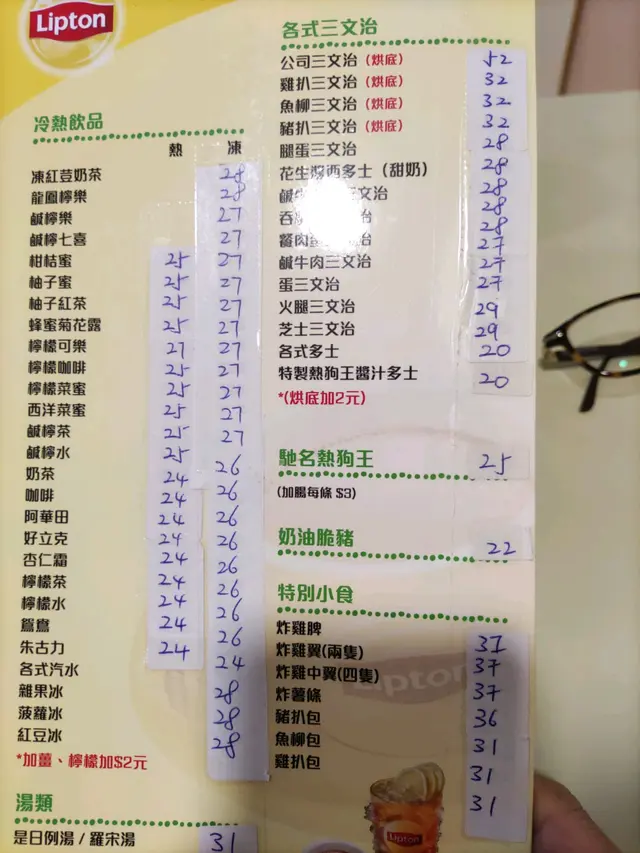 Lipton
冷熱飲品
熱 凍
凍紅荳奶茶 28
龍鳳檸樂 28
鹹檸樂 27
鹹檸七喜 27
柑桔蜜 25 27
柚子蜜 25 27
柚子紅茶 25 27
蜂蜜菊花露 25 27
檸檬可樂 27 27
檸檬咖啡 25 27
檸檬菜蜜 25 27
西洋菜蜜 25 27
鹹檸茶 25 27
鹹檸水 25 27
奶茶 24 26
咖啡 24 26
阿華田 24 26
好立克 24 26
杏仁霜 24 26
檸檬茶 24 26
檸檬水 24 26
鴛鴦 24 26
朱古力 24 26
各式汽水 24
雜果冰 28
菠蘿冰 28
紅豆冰 28
*加薑、檸檬加$2元
湯類
是日例湯 / 羅宋湯 31
各式三文治
公司三文治 (烘底) 52
雞扒三文治 (烘底) 32
魚柳三文治 (烘底) 32
豬扒三文治 (烘底) 32
腿蛋三文治 28
花生醬西多士 (甜奶) 28
鹹牛 三文治 28
吞 治 28
餐肉蛋 治 28
鹹牛肉三文治 27
蛋三文治 27
火腿三文治 29
芝士三文治 29
各式多士 20
特製熱狗王醬汁多士 20
*(烘底加2元)
馳名熱狗王 25
(加腸每條 $3)
奶油脆豬 22
特別小食
炸雞脾 37
炸雞翼(兩隻) 37
炸雞中翼(四隻) 37
炸薯條 36
豬扒包 31
魚柳包 31
雞扒包 31
Lipton
Lipton